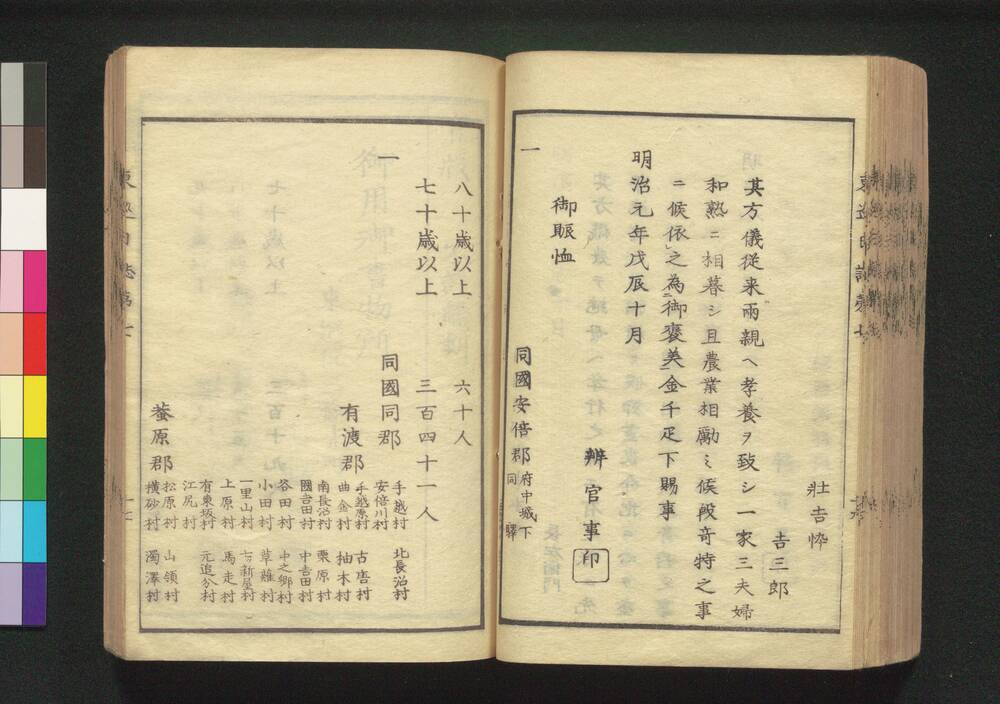 壮吉忰
吉三郎
其方儀従来両親ヘ孝養ヲ致シ一家三夫婦
和熟ニ相暮シ且農業相励ミ候段奇特之事
ニ候依之為御褒美金千疋下賜事
明治元年戊辰十月
辨官事印
御賑恤
一
同國安倍郡府中城下
同驛
八十歳以上 六十人
七十歳以上 三百四十一人
一
同國同郡
手越村 北長沼村
安倍川村
有渡郡
手越原村 古宿村
曲金村 柚木村
南長沼村 栗原村
國吉田村 中吉田村
谷田村 中之郷村
小田村 草薙村
一里山村
上原村 馬走村
有東坂村 元追分村
江尻村
菴原郡
松原村 山領村
横砂村 濁澤村
東巡日誌第七